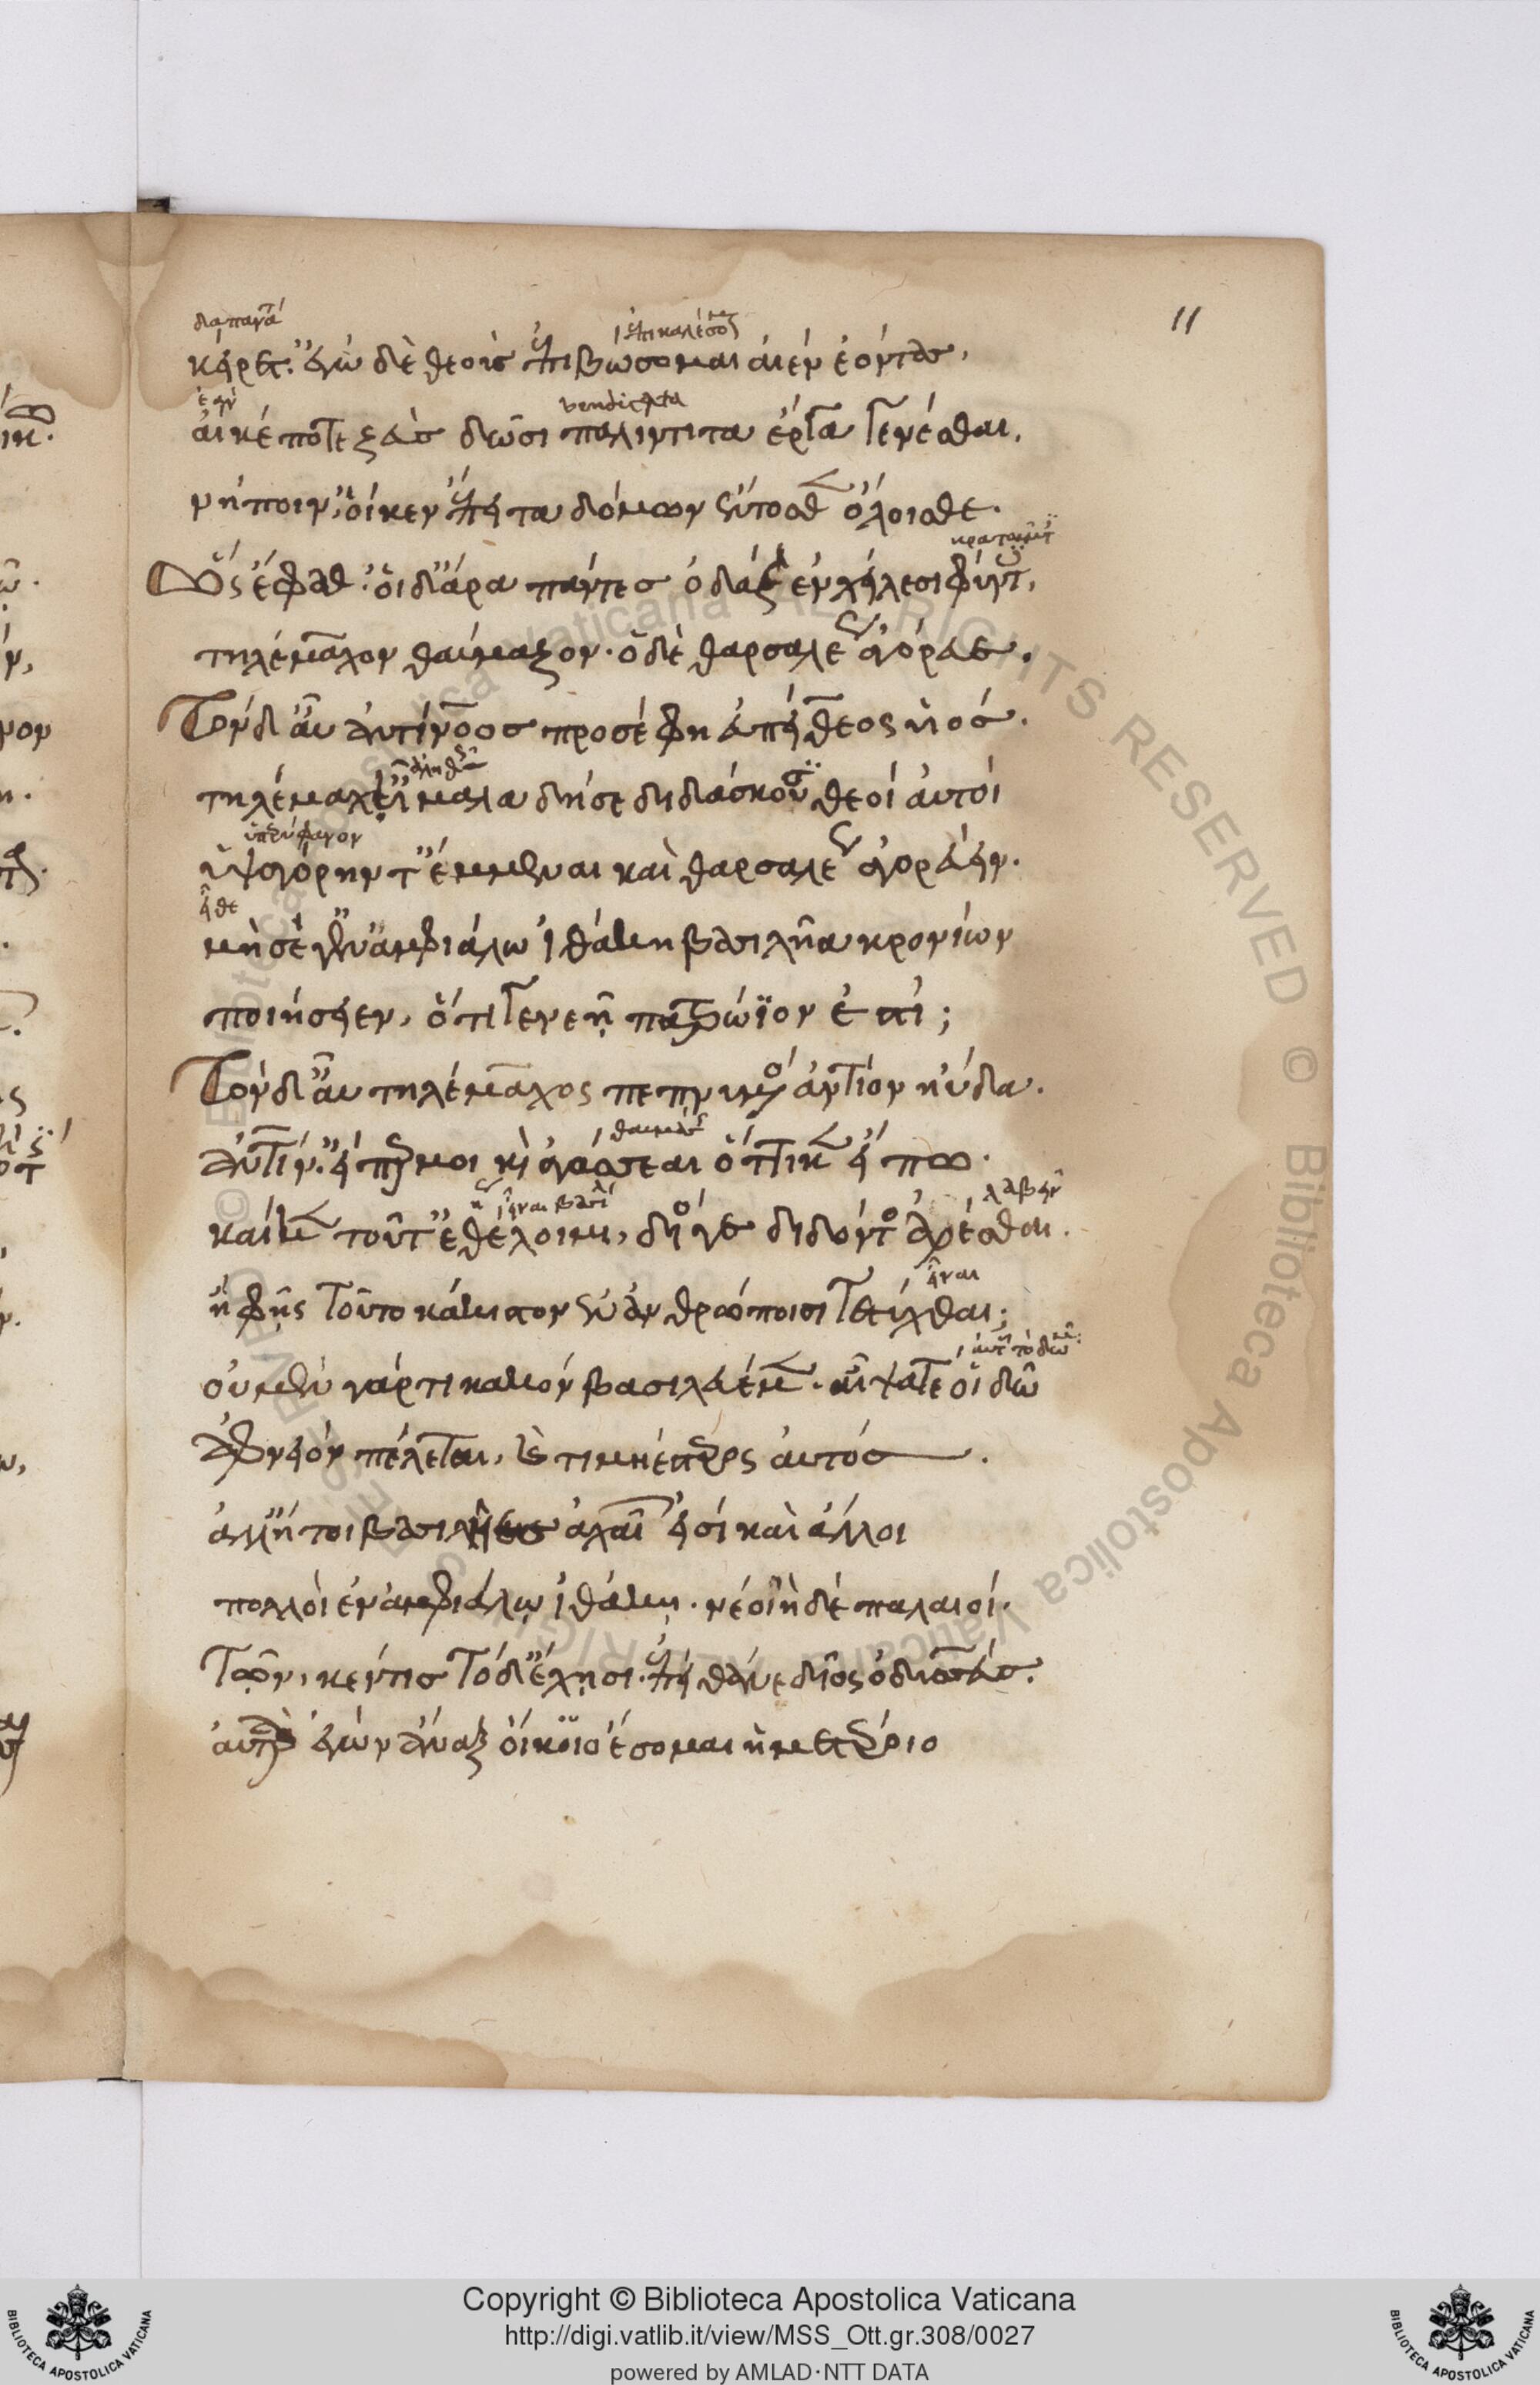 11
δαπανᾶ
ἐπικαλέσομαι
κείρετ'. ἐγὼ δὲ θεοὺς ἐπιβώσομαι αἰὲν ἐόντας,
ἐὰν
αἴ κέ ποτε ζεὺς δῶσι παλίντιτα ἔργα γενέσθαι.
νήποινοί κεν ἔπειτα δόμων ἔντοσθεν ὄλοισθε.
Ὣς ἔφαθ'. οἱ δ' ἄρα πάντες ὀδὰξ ἐν χείλεσι φύντες,
τηλέμαχον θαύμαζον. ὃ δὲ θαρσαλέως ἀγόρευε.
Τὸν δ' αὖ ἀντίνοος προσέφη εὐπείθεος υἱός.
τηλέμαχ' ἦ μάλα δή σε διδάσκουσι θεοὶ αὐτοὶ
ὑψαγόρην τ' ἔμμεναι καὶ θαρσαλέως ἀγορεύειν.
εἴθε
μὴ σέ γ' ἐν ἀμφιάλω ἰθάκη βασιλῆα κρονίων
ποιήσειεν, ὅ τι γενεῇ πατρώϊον ἐστί;
Τὸν δ' αὖ τηλέμαχος πεπνυμένος ἀντίον ηὔδα.
ἀντίν'. εἴπερ μοι κὶ ἀγάσσεαι ὅττι κεν εἴπω.
λαβεῖν
καί κεν τοῦτ' ἐθέλοιμι, διός γε διδόντος ἀρέσθαι.
εἶναι
ἢ φῂς τοῦτο κάκιστον ἐν ἀνθρώποισι τετύχθαι;
οὐ μὲν γάρ τι κακὸν βασιλευέμεν. αἶψά τε οἱ δῶ
ἀφνειὸν πέλεται, καὶ τιμηέστερος αὐτός.
ἀλλ' ἤτοι βασιλῆες ἀχαιῶν εἰσὶ καὶ ἄλλοι
πολλοὶ ἐν ἀμφιάλῳ ἰθάκῃ. νέοι ἠδὲ παλαιοί.
Τῶν κέν τις τόδ' ἔχῃσι. ἐπεὶ θάνε δῖος ὀδυσσεύς.
αὐτὰρ ἐγὼν ἄναξ οἴκοιο ἔσομαι ἡμετέροιο
Copyright © Biblioteca Apostolica Vaticana
http://digi.vatlib.it/view/MSS_Ott.gr.308/0027
powered by AMLAD·NTT DATA